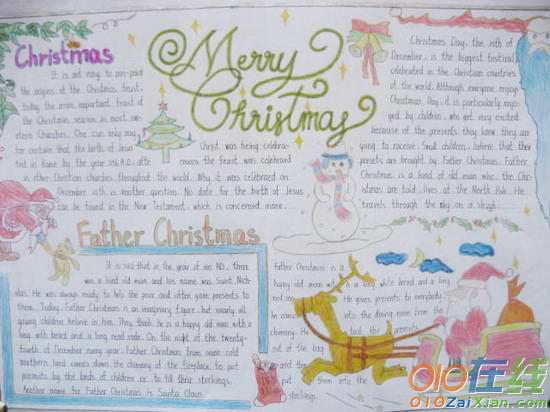 Christmas
It is not easy to pin-point
the origins of the Christmas feast,
today the most important feast of
the Christmas season in most wes-
tern Churches. One can only say
for certain that the birth of Jesus
ted in Rome by the year 336 A.D. afte
in other Christian churches throughout the world. Why it was celebrated on
December 25th is another question. No date for the birth of Jesus
can be found in the New Testament, which is concerned more
Christ was being celebra-
rwards the feast was celebrated
Merry
Christmas
Christmas Day, the 25th of
December, is the biggest festival
celebrated in the Christian countries
of the world. Although everyone enjoys
Christmas Day, it is particularly enjo-
yed by children, who get very excited
because of the presents they know they are
going to receive. Small children believe that their
presents are brought by Father Christmas. Father
Christmas is a kind of old man who, the Chr-
istmas are told, lives at the North Pole. He
travels through the sky on a sleigh
Father Christmas
It is said that in the year of A.D. there
was a kind old man and his name was Saint Nich-
olas. He was always ready to help the poor and often gave presents to
them. Today, Father Christmas is an imaginary figure, but nearly all
young children believe in him. They think he is a happy old man with a
long with beard and a long read robe. On the night of the twenty-
fourth of December every year, Father Christmas from some cold
northern land comes down the chimney of the fireplace to put
presents by the beds of children or to fill their stockings.
Another name for Father Christmas is Santa Claus.
Father Christmas is a
happy old man with a long white beard and a long
He gives presents to everybody
into the dining room from the
chimney. He took the presents
out of the bag
and put them into the
010在线
010ZaiXian.com